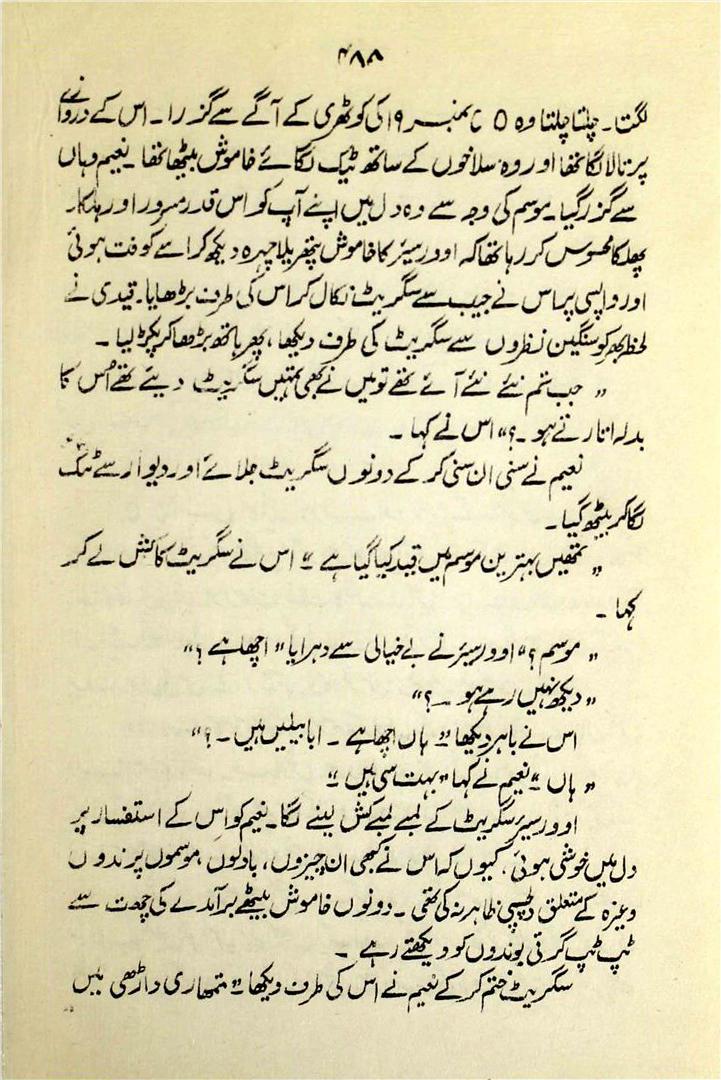 ۴۸۸
لگتا۔ چلتا چلتا وہ ۵ ح نمبر ۱۹ کی کوٹھری کے آگے سے گزرا۔ اس کے دروازے
پر تالا لگا تھا اور وہ سلاخوں کے ساتھ ٹیک لگائے خاموش بیٹھا تھا۔ نعیم وہاں
سے گزر گیا۔ موسم کی وجہ سے وہ دل میں اپنے آپ کو اس قدر مسرور اور ہلکا۔
پھلکا محسوس کر رہا تھا کہ اوورسیئر کا خاموش پتھریلا چہرہ دیکھ کر اسے کوفت ہوئی
اور واپسی پر اس نے جیب سے سگریٹ نکال کر اس کی طرف بڑھایا۔ قیدی نے
لحظہ بھر کو سنگین نظروں سے سگریٹ کی طرف دیکھا، پھر ہاتھ بڑھا کر پکڑ لیا۔
”جب تم نئے نئے آئے تھے تو میں نے بھی تمہیں سگریٹ دیئے تھے اُس کا
بدلہ اتارتے ہو۔؟“ اس نے کہا۔
نعیم نے سنی ان سنی کر کے دونوں سگریٹ جلائے اور دیوار سے ٹیک
لگا کر بیٹھ گیا۔
”تمھیں بہترین موسم میں قید کیا گیا ہے“ اس نے سگریٹ کا کش لے کر
کہا۔
”موسم؟“ اوورسیئر نے بے خیالی سے دہرایا ”اچھا ہے؟“
”دیکھ نہیں رہے ہو۔؟“
اس نے باہر دیکھا ”ہاں اچھا ہے۔ ابابیلیں ہیں۔؟“
”ہاں“ نعیم نے کہا ”بہت سی ہیں“
اوورسیئر سگریٹ کے لمبے لمبے کش لینے لگا۔ نعیم کو اس کے استفسار پر
دل میں خوشی ہوئی، کیوں کہ اس نے کبھی ان چیزوں، بادلوں، موسموں پرندوں
وغیرہ کے متعلق دلچسپی ظاہر نہ کی تھی۔ دونوں خاموش بیٹھے برآمدے کی چھت سے
ٹپ ٹپ گرتی بوندوں کو دیکھتے رہے۔
سگریٹ ختم کر کے نعیم نے اس کی طرف دیکھا ”تمھاری داڑھی میں